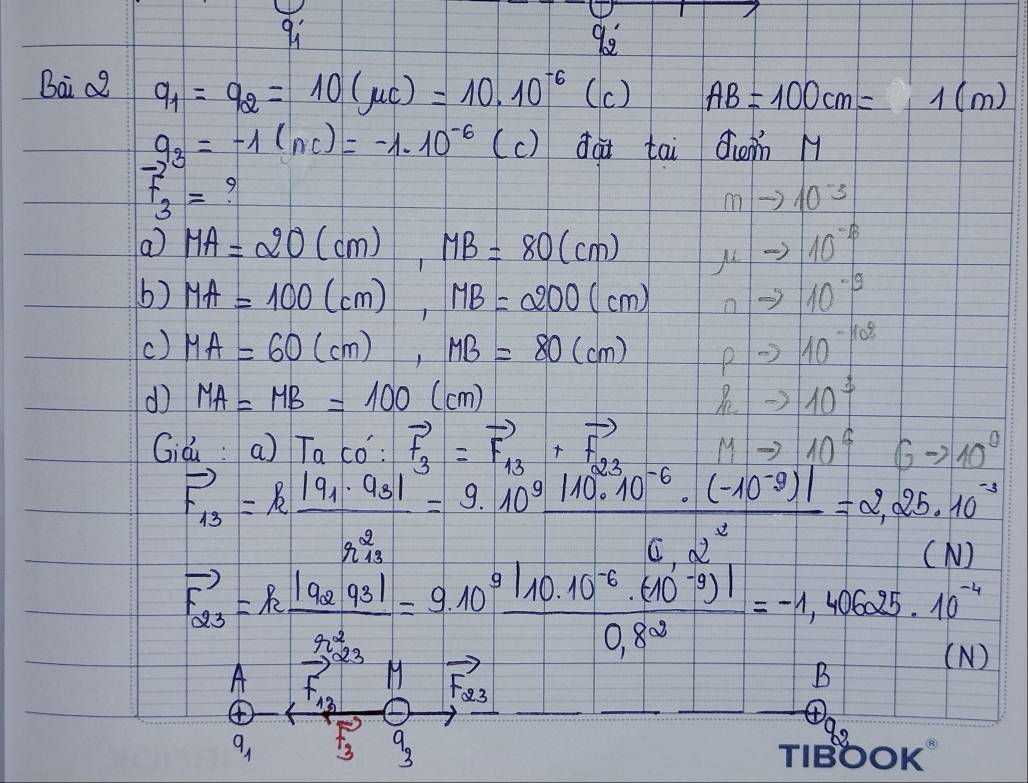 q₁' q₂'
Bài 2 q₁ = q₂ = 10 (μc) = 10.10⁻⁶ (c) AB = 100cm = 1 (m)
q₃ = -1 (nc) = -1.10⁻⁶ (c) đặt tại điểm M
F⃗₃ = ? m → 10⁻³
a) MA = 20 (cm) , MB = 80 (cm) μ → 10⁻⁶
b) MA = 100 (cm) , MB = 200 (cm) n → 10⁻⁹
c) MA = 60 (cm) , MB = 80 (cm) p → 10⁻¹²
d) MA = MB = 100 (cm) k → 10³
Giải : a) Ta có : F⃗₃ = F⃗₁₃ + F⃗₂₃ M → 10⁶ G → 10⁹
F⃗₁₃ = k |q₁ . q₃| / r₁₃² = 9.10⁹ |10.10⁻⁶ . (-10⁻⁹)| / 0,2² = 2,25.10⁻³ (N)
F⃗₂₃ = k |q₂ q₃| / r₂₃² = 9.10⁹ |10.10⁻⁶ . (10⁻⁹)| / 0,8² = -1,40625.10⁻⁴ (N)
A F⃗₁₃ M F⃗₂₃ B
+ − +
q₁ F⃗₃ q₃ q₂
TIBOOK®